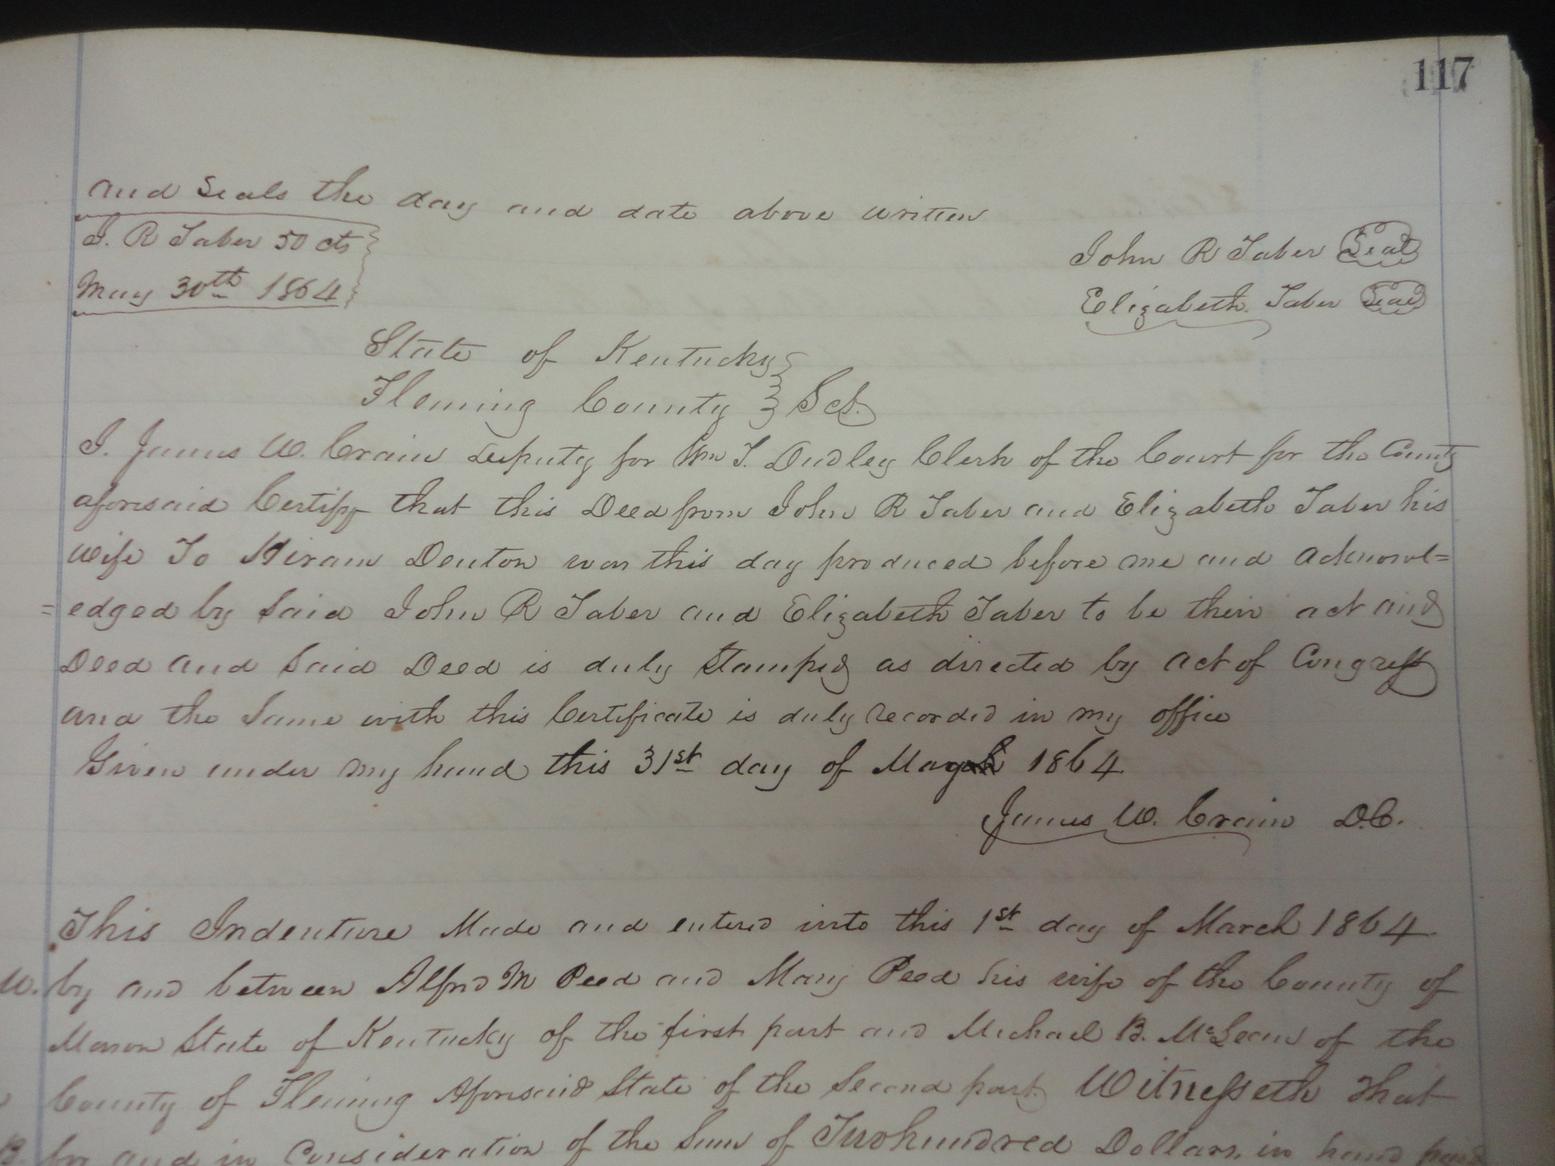 117
and Seals the day and date above written
J. R Taber 50 cts
May 30th 1864
John R Taber Seal
Elizabeth Taber Seal
State of Kentucky
Fleming County Sct.
I. James W. Crain deputy for Wm T. Dudley Clerk of the Court for the County
aforesaid Certify that this Deed from John R Taber and Elizabeth Taber his
wife To Hiram Denton was this day produced before me and acknowl=
=edged by said John R Taber and Elizabeth Taber to be their act and
Deed and said Deed is duly stamped as directed by act of Congress
and the same with this Certificate is duly recorded in my office
Given under my hand this 31st day of May 1864
James W. Crain D.C.
This Indenture Made and entered into this 1st day of March 1864
by and between Alfred M Peed and Mary Peed his wife of the County of
Mason State of Kentucky of the first part and Michael B. McLean of the
County of Fleming Aforesaid State of the Second part Witnesseth That
for and in Consideration of the Sum of Twohundred Dollars in hand paid